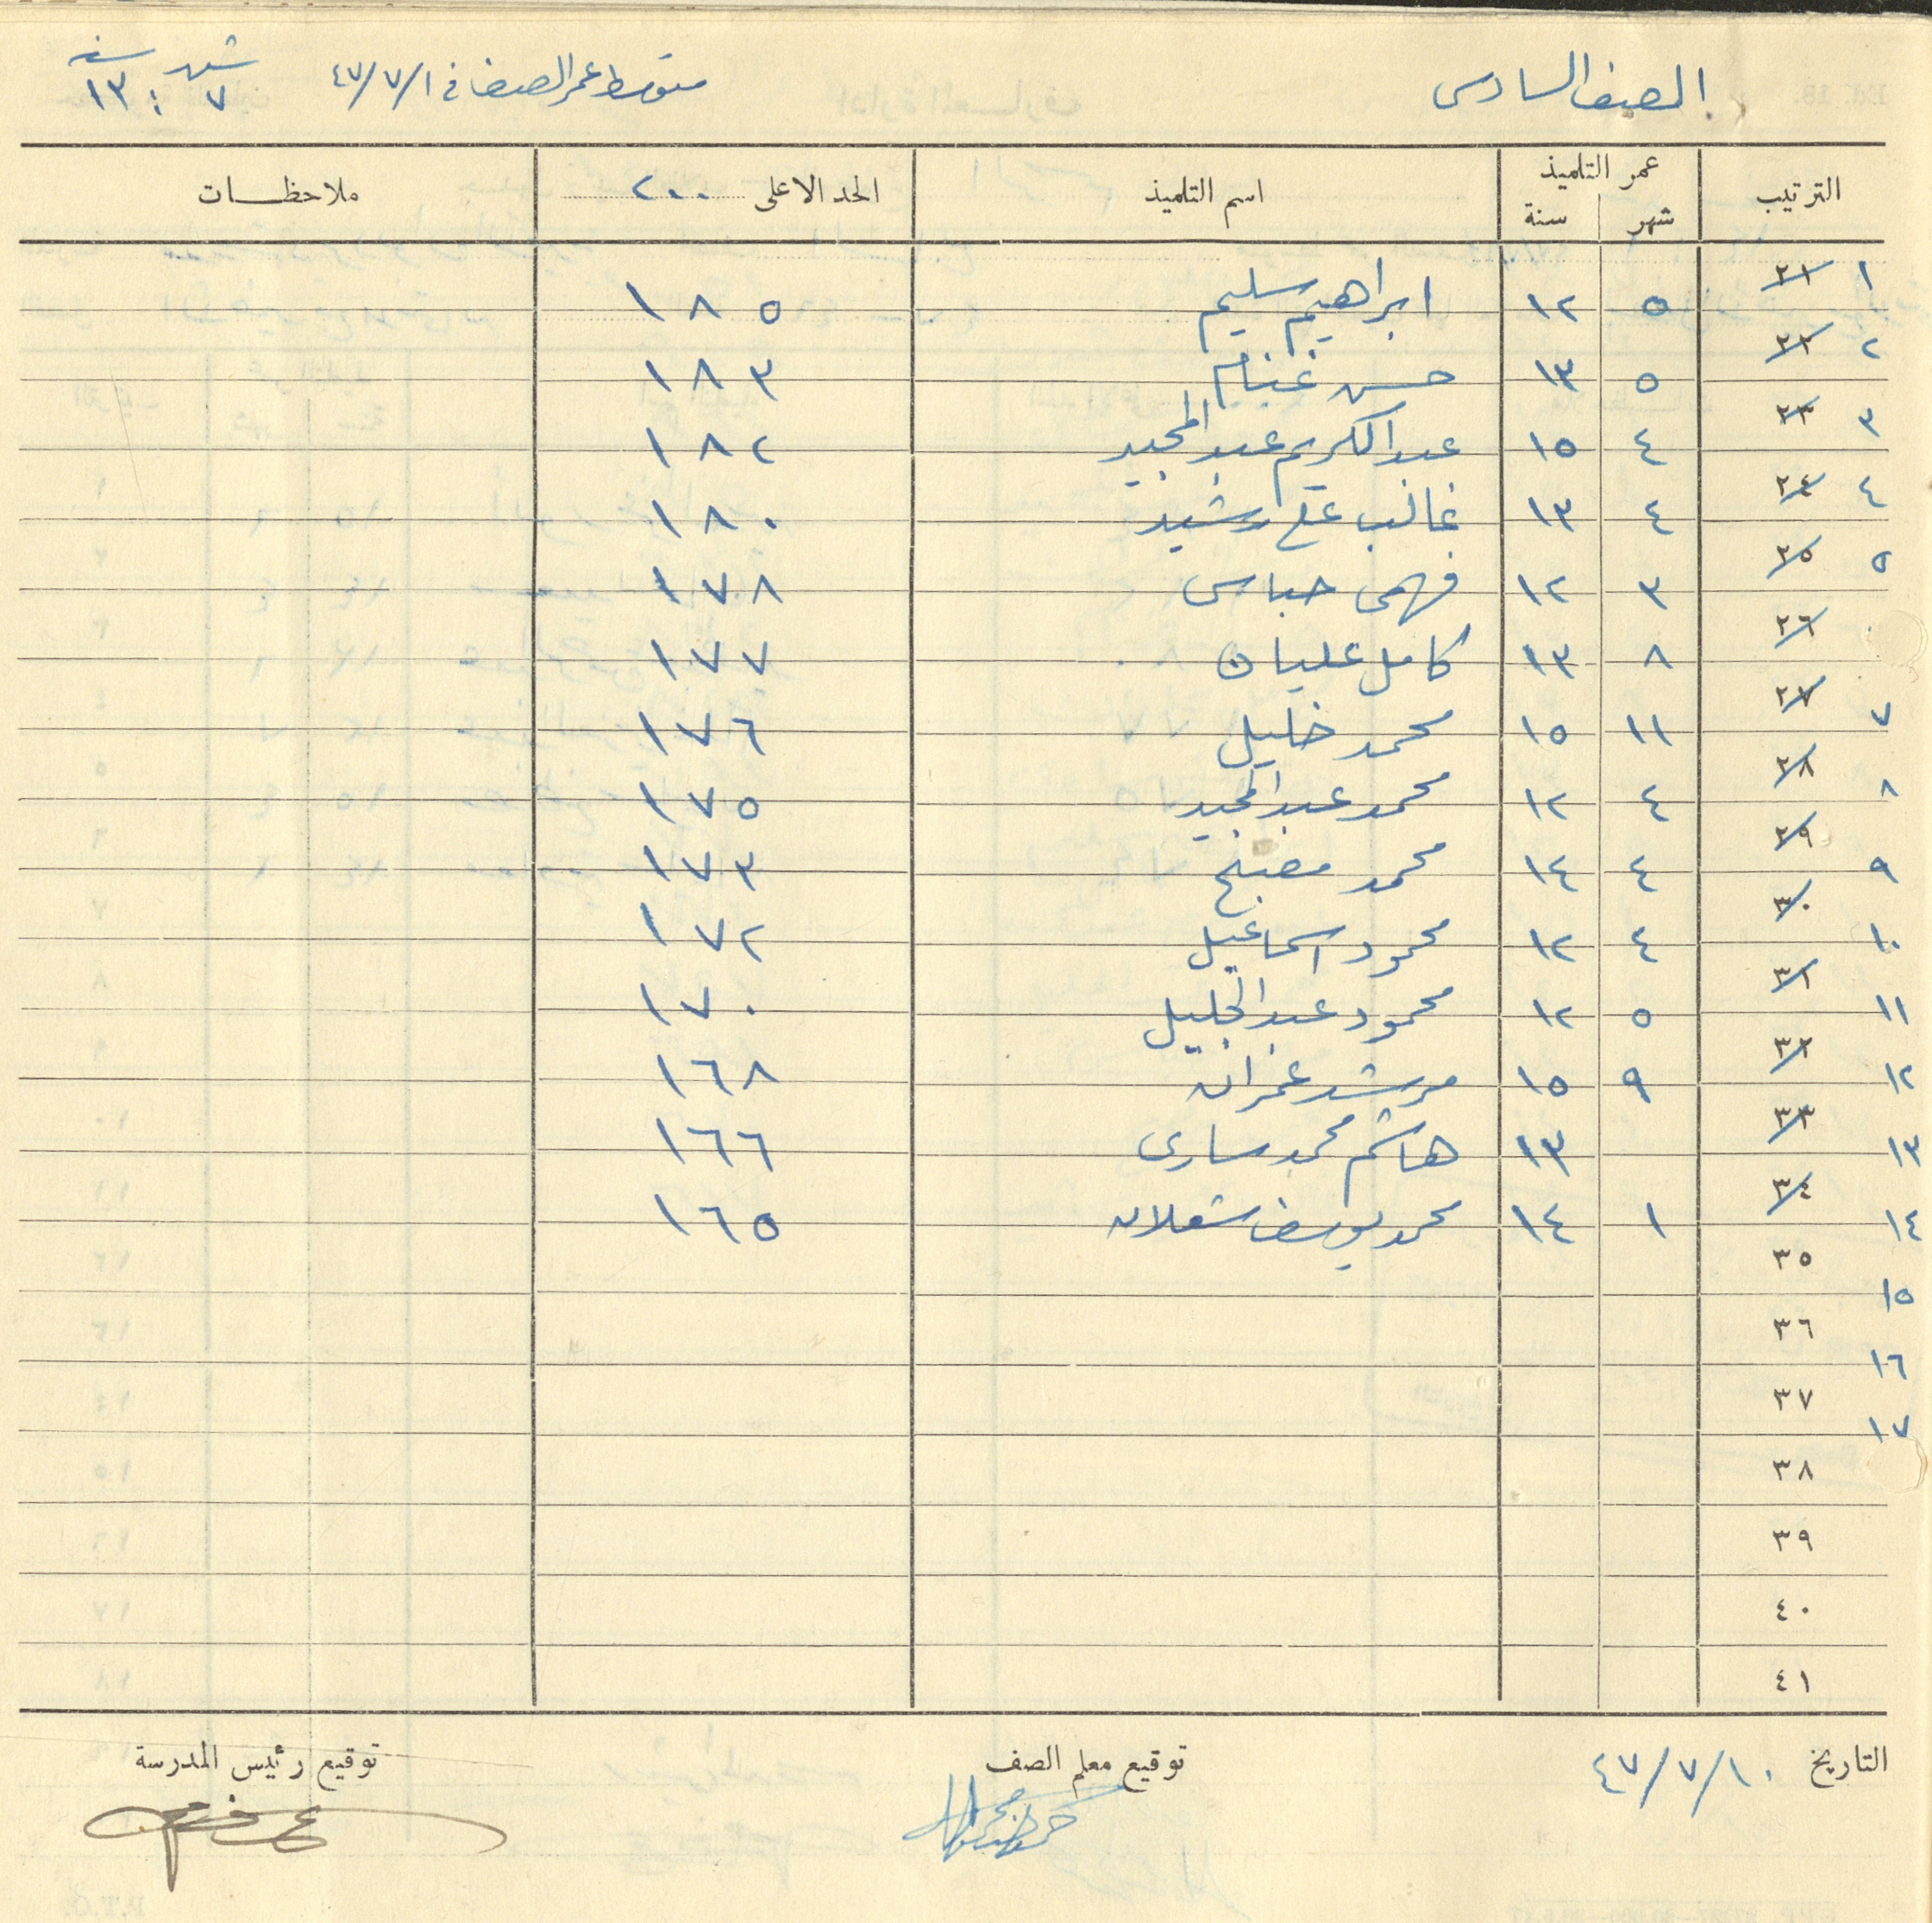 الصف السادس متوسط عمر الصف في ٤٧/٧/١ شهر ٧ : سنه ١٣
الترتيب عمر التلميذ شهر سنة اسم التلميذ الحد الاعلى ٢٠٠ ملاحظــات
١ ٢١ ٥ ١٢ ابراهيم سليم ١٨٥
٢ ٢٢ ٥ ١٣ حسن غنام ١٨٣
٣ ٢٣ ٤ ١٥ عبد الكريم عبد المجيد ١٨٢
٤ ٢٤ ٤ ١٣ غالب علي رشيد ١٨٠
٥ ٢٥ ٣ ١٢ فهمي حباس ١٧٨
٢٦ ٨ ١٣ كامل عليان ١٧٧
٧ ٢٧ ١١ ١٥ محمد خليل ١٧٦
٨ ٢٨ ٤ ١٢ محمد عبد المجيد ١٧٥
٩ ٢٩ ٤ ١٤ محمد مصبح ١٧٣
١٠ ٣٠ ٤ ١٢ محمود اسماعيل ١٧٢
١١ ٣١ ٥ ١٢ محمود عبد الجليل ١٧٠
١٢ ٣٢ ٩ ١٥ مرشد عمران ١٦٨
١٣ ٣٣ ١٣ هاشم محمد ساري ١٦٦
١٤ ٣٤ ١ ١٤ محمد يوسف شعلان ١٦٥
١٥ ٣٥
١٦ ٣٦
١٧ ٣٧
٣٨
٣٩
٤٠
٤١
التاريخ ٤٧/٧/١٠ توقيع معلم الصف توقيع رئيس المدرسة